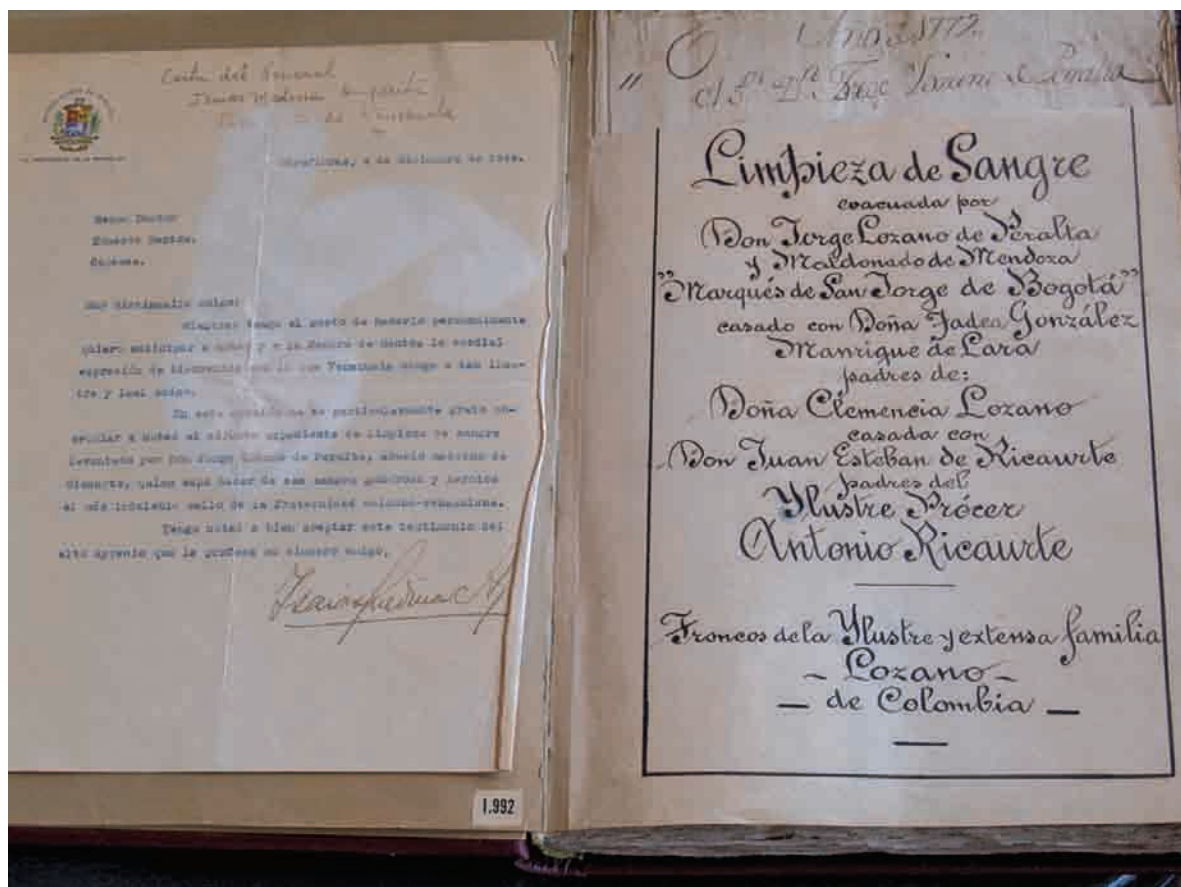 Carta del General
Isaías Medina Angarita
de Venezuela
Miraflores, 4 de diciembre de
Señor Doctor
Eduardo Santos.
Caracas.
Muy distinguido amigo:
Mientras tengo el gusto de hacerlo personalmente
quiero anticipar a usted y a la Señora de Santos la cordial
expresión de bienvenida con la que Venezuela acoge a tan ilus-
tre y leal amigo.
En esta ocasión me es particularmente grato ob-
sequiar a usted el adjunto expediente de limpieza de sangre
levantada por Don Jorge Lozano de Peralta, abuelo materno de
Ricaurte, quien supo hacer de esa sangre generosa y heroica
el más indeleble sello de la fraternidad colombo-venezolana.
Tenga usted a bien aceptar este testimonio del
alto aprecio que le profesa su sincero amigo,
Isaías Medina A
1.992
Año de 1772.
Limpieza de Sangre
evacuada por
Don Jorge Lozano de Peralta
y Maldonado de Mendoza
"Marqués de San Jorge de Bogotá"
casado con Doña Tadea González
Manrique de Lara
padres de:
Doña Clemencia Lozano
casada con
Don Juan Esteban de Ricaurte
padres del
Ylustre Prócer
Antonio Ricaurte
Troncos de la Ylustre y extensa familia
- Lozano -
- de Colombia -